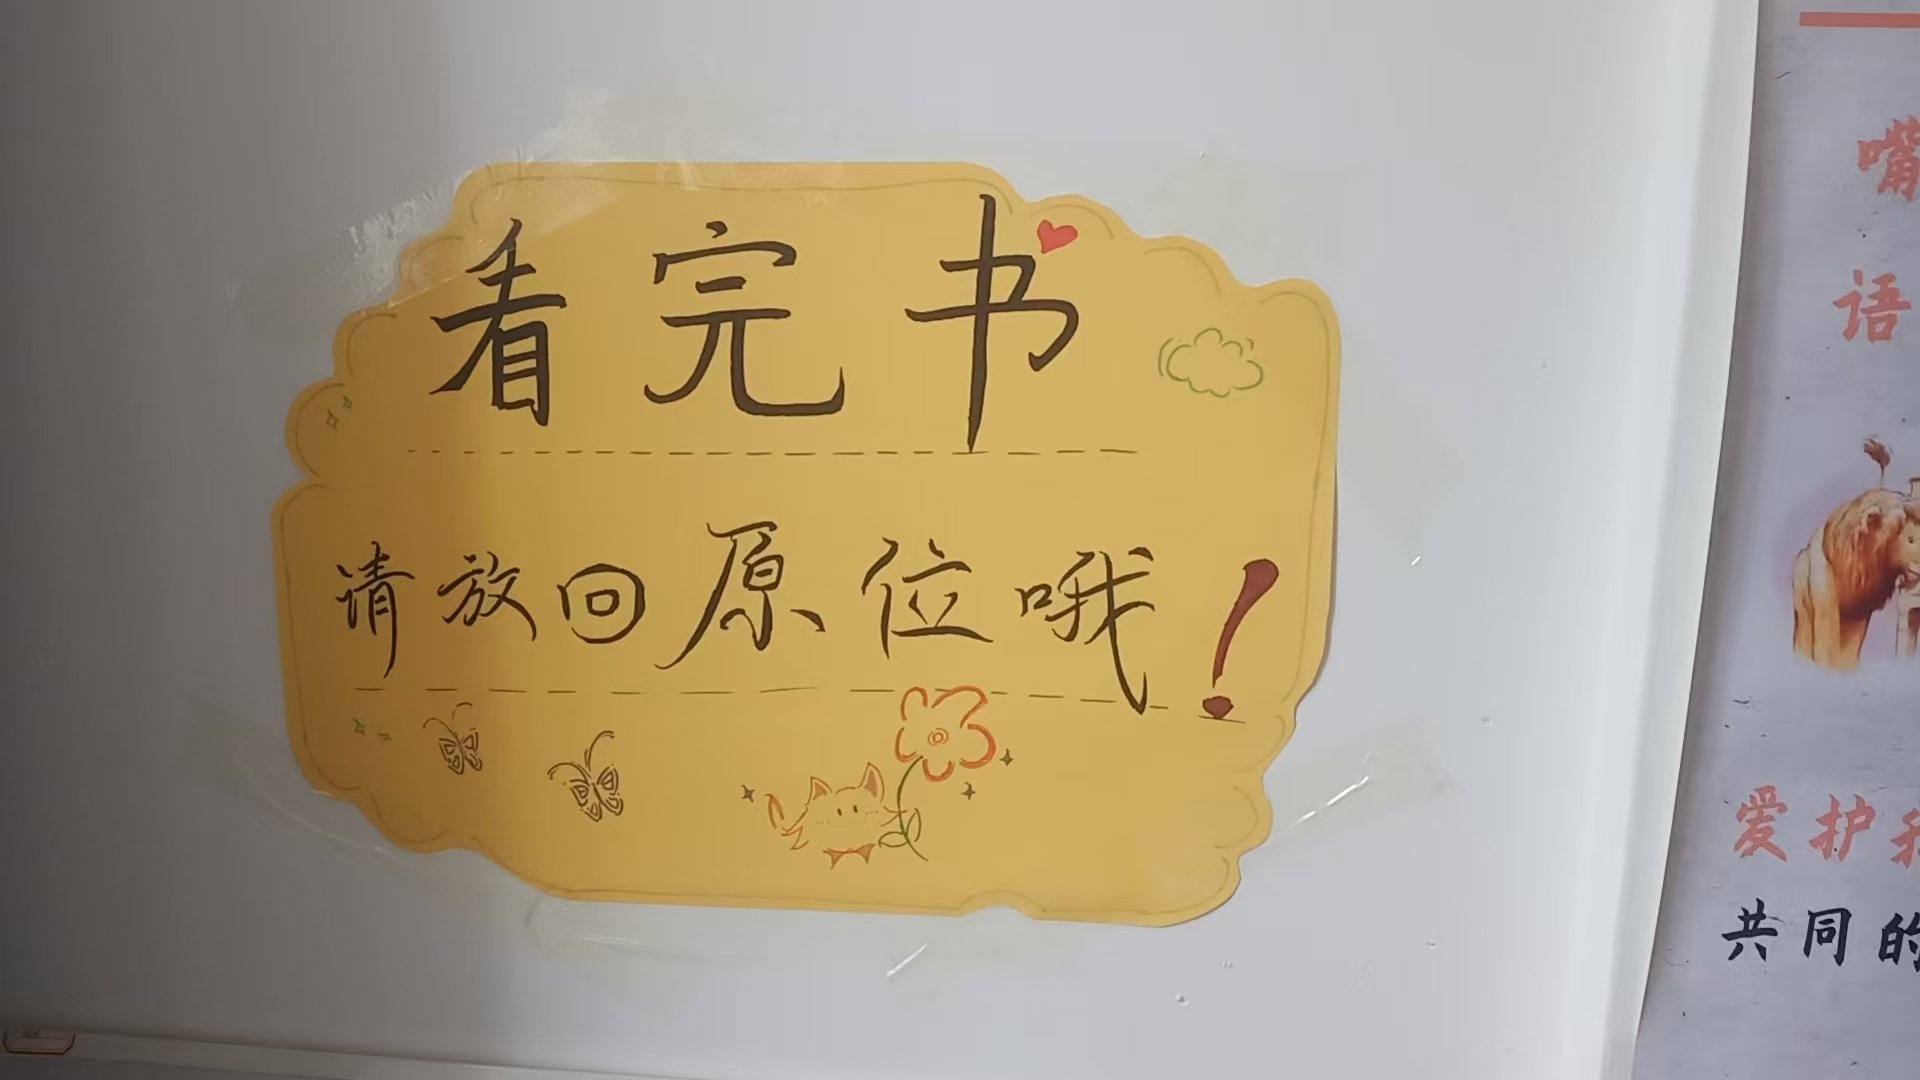 看完书
请放回原位哦！
嘴
语
爱护
共同的